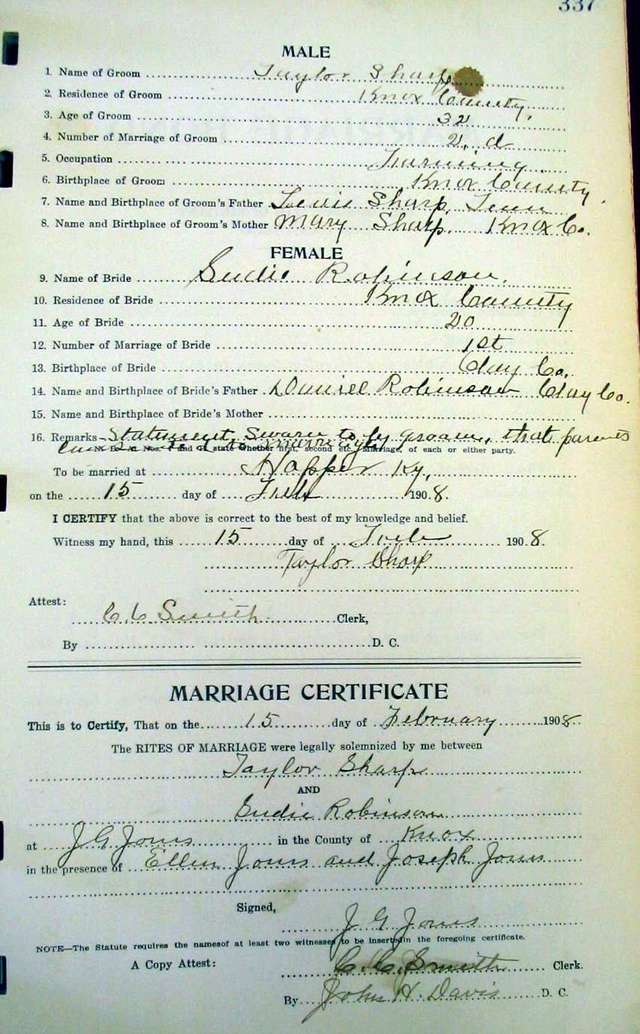 337
MALE
1. Name of Groom Taylor Sharp
2. Residence of Groom Knox County.
3. Age of Groom 32
4. Number of Marriage of Groom 2.d
5. Occupation Farming.
6. Birthplace of Groom Knox County.
7. Name and Birthplace of Groom's Father Lewis Sharp, Tenn
8. Name and Birthplace of Groom's Mother Mary Sharp. Knox Co.
FEMALE
9. Name of Bride Sudie Robinson.
10. Residence of Bride Knox County
11. Age of Bride 20
12. Number of Marriage of Bride 1st
13. Birthplace of Bride Clay Co.
14. Name and Birthplace of Bride's Father Daniel Robinson Clay Co.
15. Name and Birthplace of Bride's Mother
16. Remarks Statement Sworn to by groom, that parents
and of state whether first, second etc. marriage, of each or either party.
To be married at Hopper Ky,
on the 15 day of Feb 1908.
I CERTIFY that the above is correct to the best of my knowledge and belief.
Witness my hand, this 15 day of Feb 1908.
Taylor Sharp
Attest:
C. C. Smith Clerk,
By D. C.
MARRIAGE CERTIFICATE
This is to Certify, That on the 15 day of February 1908
The RITES OF MARRIAGE were legally solemnized by me between
Taylor Sharp
AND
Sudie Robinson
at J G Jones in the County of Knox
in the presence of Ellen Jones and Joseph Jones
Signed,
J G Jones
NOTE—The Statute requires the namesof at least two witnesses to be inserted in the foregoing certificate.
A Copy Attest: C. C. Smith Clerk.
By John H. Davis D. C.